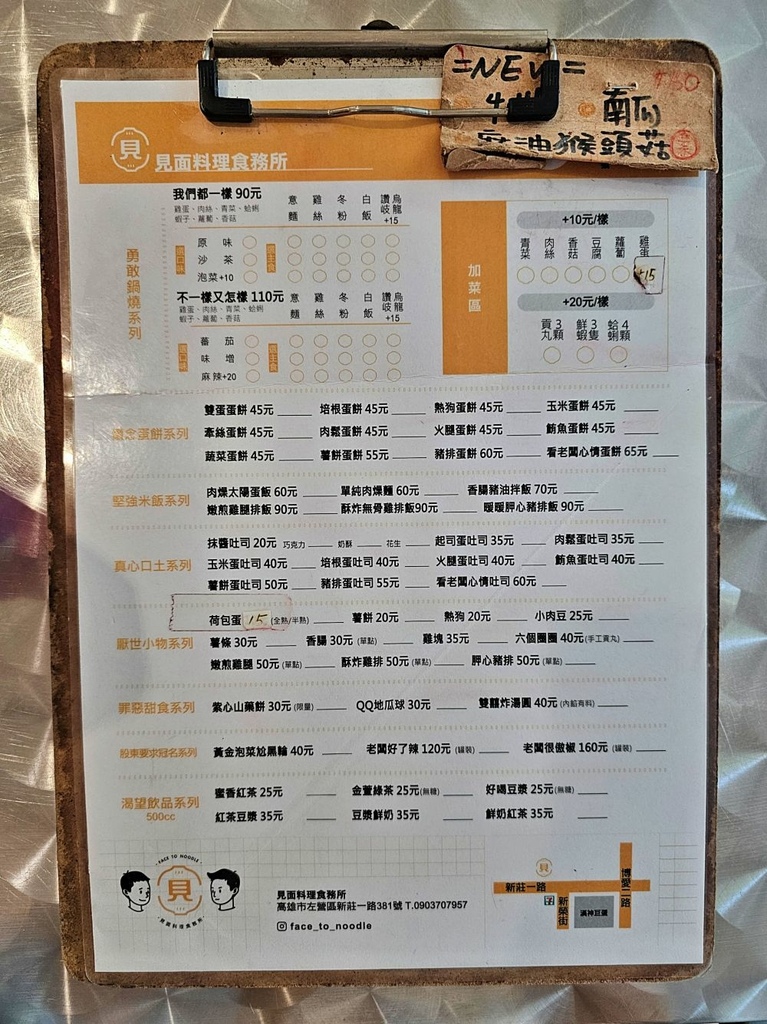 =NEW=
南瓜
$80
麻油猴頭菇
見 見面料理食務所
勇敢鍋燒系列
我們都一樣 90元
雞蛋、肉絲、青菜、蛤蜊
蝦子、蘿蔔、香菇
意麵 雞絲 冬粉 白飯 讚岐烏龍+15
原味
沙茶
泡菜+10
不一樣又怎樣 110元
雞蛋、肉絲、青菜、蛤蜊
蝦子、蘿蔔、香菇
意麵 雞絲 冬粉 白飯 讚岐烏龍+15
番茄
味增
麻辣+20
加菜區
+10元/樣
青菜 肉絲 香菇 豆腐 蘿蔔 雞蛋
+15
+20元/樣
貢丸3顆 鮮蝦3隻 蛤蜊4顆
懷念蛋餅系列
雙蛋蛋餅 45元 培根蛋餅 45元 熱狗蛋餅 45元 玉米蛋餅 45元
牽絲蛋餅 45元 肉鬆蛋餅 45元 火腿蛋餅 45元 鮪魚蛋餅 45元
蔬菜蛋餅 45元 薯餅蛋餅 55元 豬排蛋餅 60元 看老闆心情蛋餅 65元
堅強米飯系列
肉燥太陽蛋飯 60元 單純肉燥麵 60元 香腸豬油拌飯 70元
嫩煎雞腿排飯 90元 酥炸無骨雞排飯90元 暖暖胛心豬排飯 90元
真心口土系列
抹醬吐司 20元 巧克力 奶酥 花生 起司蛋吐司 35元 肉鬆蛋吐司 35元
玉米蛋吐司 40元 培根蛋吐司 40元 火腿蛋吐司 40元 鮪魚蛋吐司 40元
薯餅蛋吐司 50元 豬排蛋吐司 55元 看老闆心情吐司 60元
厭世小物系列
荷包蛋 15 (全熟/半熟) 薯餅 20元 熱狗 20元 小肉豆 25元
薯條 30元 香腸 30元 (單點) 雞塊 35元 六個圈圈 40元 (手工貢丸)
嫩煎雞腿 50元 (單點) 酥炸雞排 50元 (單點) 胛心豬排 50元 (單點)
罪惡甜食系列
紫心山藥餅 30元 (限量) QQ地瓜球 30元 雙囍炸湯圓 40元 (內餡有料)
股東要求冠名系列
黃金泡菜尬黑輪 40元 老闆好了辣 120元 (罐裝) 老闆很傲椒 160元 (罐裝)
渴望飲品系列
500cc
蜜香紅茶 25元 金萱綠茶 25元(無糖) 好喝豆漿 25元(無糖)
紅茶豆漿 35元 豆漿鮮奶 35元 鮮奶紅茶 35元
FACE TO NOODLE
見
見面料理食務所
見面料理食務所
高雄市左營區新莊一路381號 T.0903707957
face_to_noodle
見
新莊一路
新榮街
博愛二路
滿神豆蛋